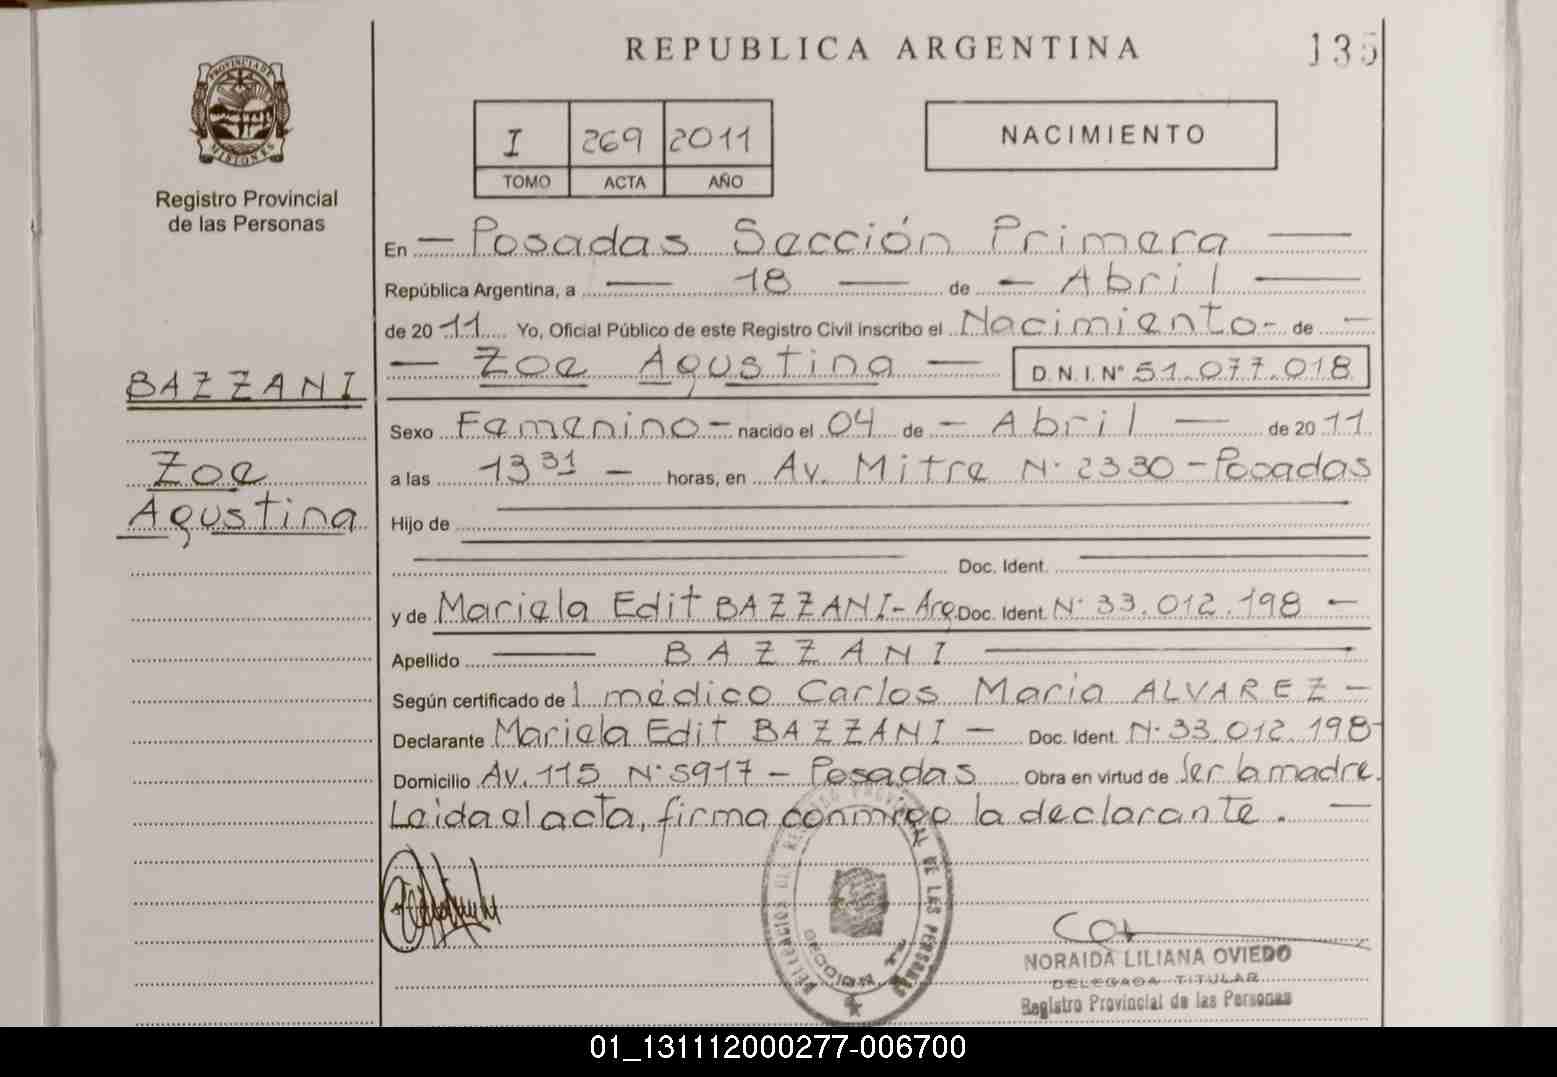 REPUBLICA ARGENTINA
135
PROVINCIA DE
MISIONES
Registro Provincial
de las Personas
I 269 2011
TOMO ACTA AÑO
NACIMIENTO
En — Posadas Sección Primera —
República Argentina, a — 18 — de — Abril —
de 2011 Yo, Oficial Público de este Registro Civil inscribo el Nacimiento - de —
— Zoe Agustina — D.N.I. N° 51.077.018
BAZZANI
Zoe
Agustina
Sexo Femenino - nacido el 04 de — Abril — de 2011
a las 13 31 — horas, en Av. Mitre N° 2330 - Posadas
Hijo de
Doc. Ident.
y de Mariela Edit BAZZANI - Arg. Doc. Ident. N° 33.012.198 —
Apellido — BAZZANI —
Según certificado del médico Carlos Maria ALVAREZ —
Declarante Mariela Edit BAZZANI — Doc. Ident. N° 33.012.198 -
Domicilio Av. 115 N° 5917 - Posadas Obra en virtud de ser la madre.
Leida el acta, firma conmigo la declarante. —
DELEGACION DEL REGISTRO PROVINCIAL DE LAS PERSONAS
NORAIDA LILIANA OVIEDO
DELEGADA TITULAR
Registro Provincial de las Personas
01_131112000277-006700